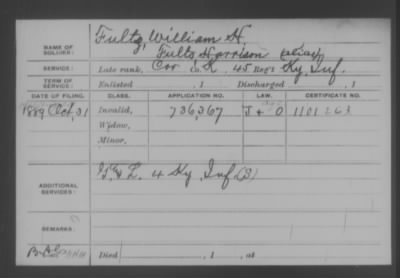 Fultz, William H.
NAME OF SOLDIER: Fults Harrison alias
SERVICE: Late rank, Cor Co. K, 45 Reg't Ky. Inf.
TERM OF SERVICE: Enlisted , 1 Discharged , 1
DATE OF FILING. CLASS. APPLICATION NO. LAW. CERTIFICATE NO.
1889 Oct. 31 Invalid, 736,367 J O 1101263
Widow,
Minor,
ADDITIONAL SERVICES: L 4 Ky Inf (S)
REMARKS:
Died , 1 , at